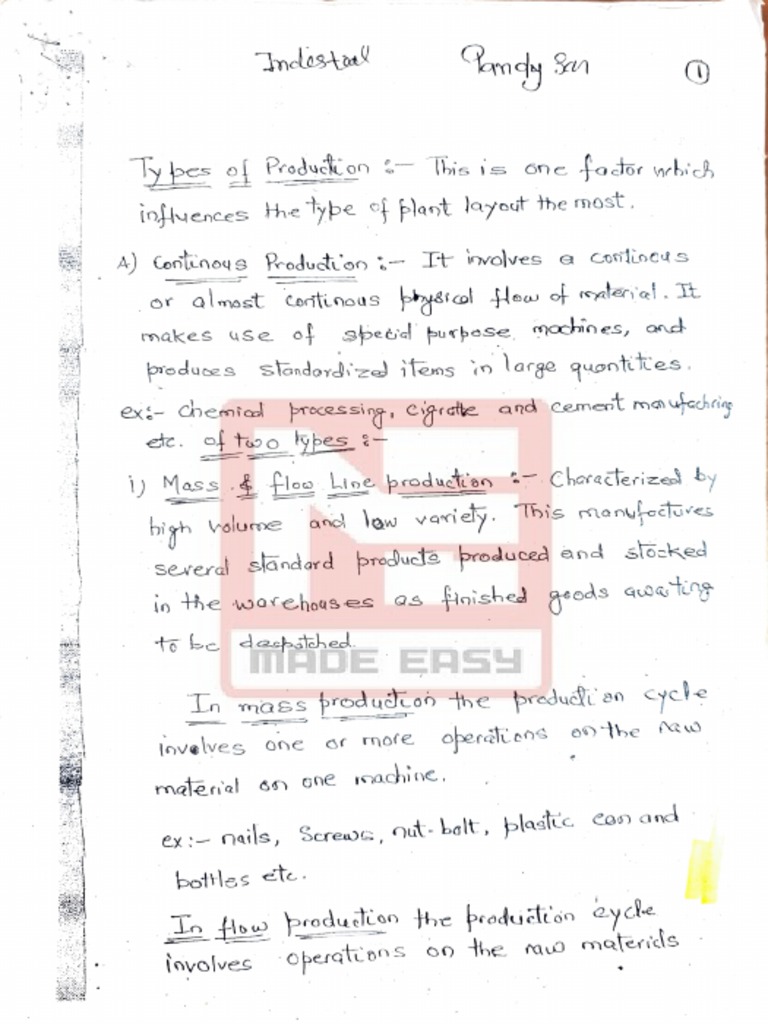 Indestael Pandy Sar 1
Types of Production :- This is one factor which
influences the type of plant layout the most.
A) Continous Production :- It involves a contineus
or almost continous physical flow of material. It
makes use of special purpose machines, and
produces standardized items in large quantities.
ex:- Chemical processing, cigratte and cement manufachring
etc. of two types :-
i) Mass & flow Line production :- Characterized by
high volume and low variety. This manufactures
several standard products produced and stocked
in the warehouses as finished goods awaiting
to be despatched.
MADE EASY
In mass production the production cycle
involves one or more operations on the raw
material on one machine.
ex:- nails, Screws, nut-bolt, plastic can and
bottles etc.
In flow production the production cycle
involves operations on the raw materials